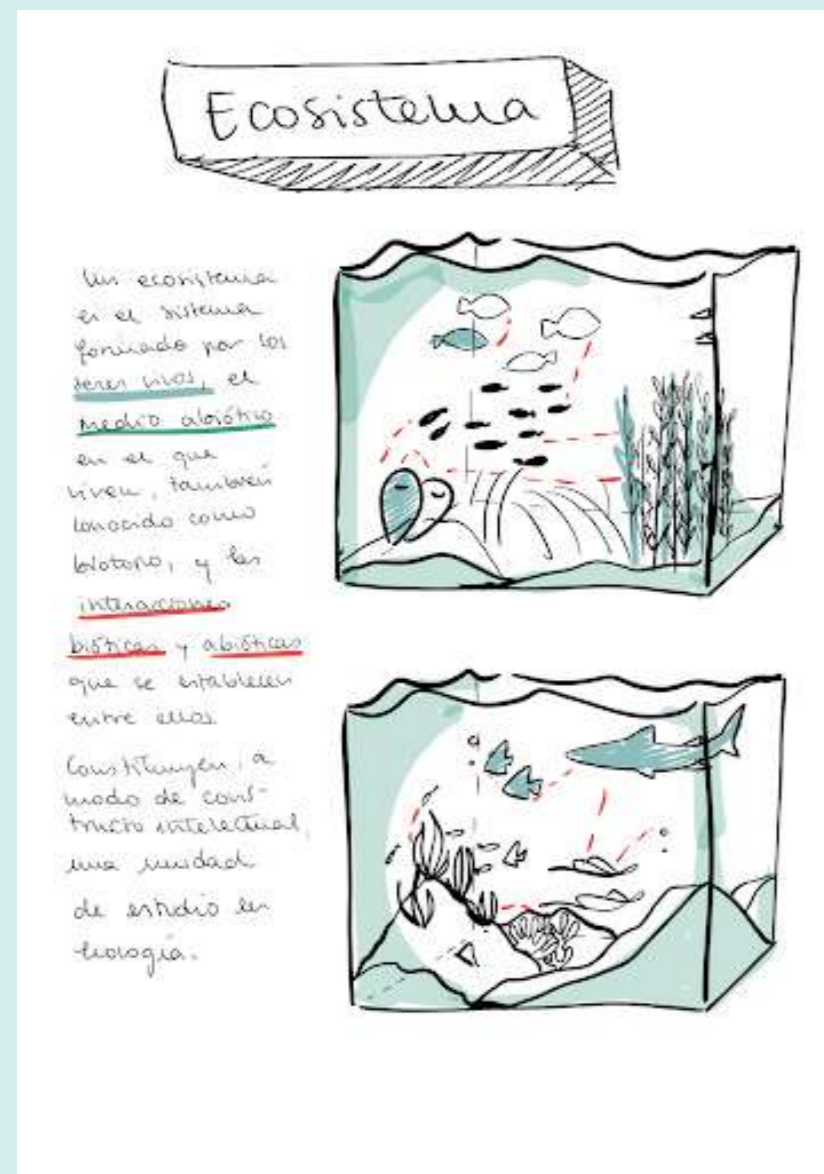 Ecosistema
Un ecosistema
es el sistema
formado por los
seres vivos, el
medio abiótico
en el que
viven, también
conocido como
biotopo, y las
interacciones
bióticas y abióticas
que se establecen
entre ellos.
Constituyen, a
modo de cons-
tructo intelectual,
una unidad
de estudio en
biología.